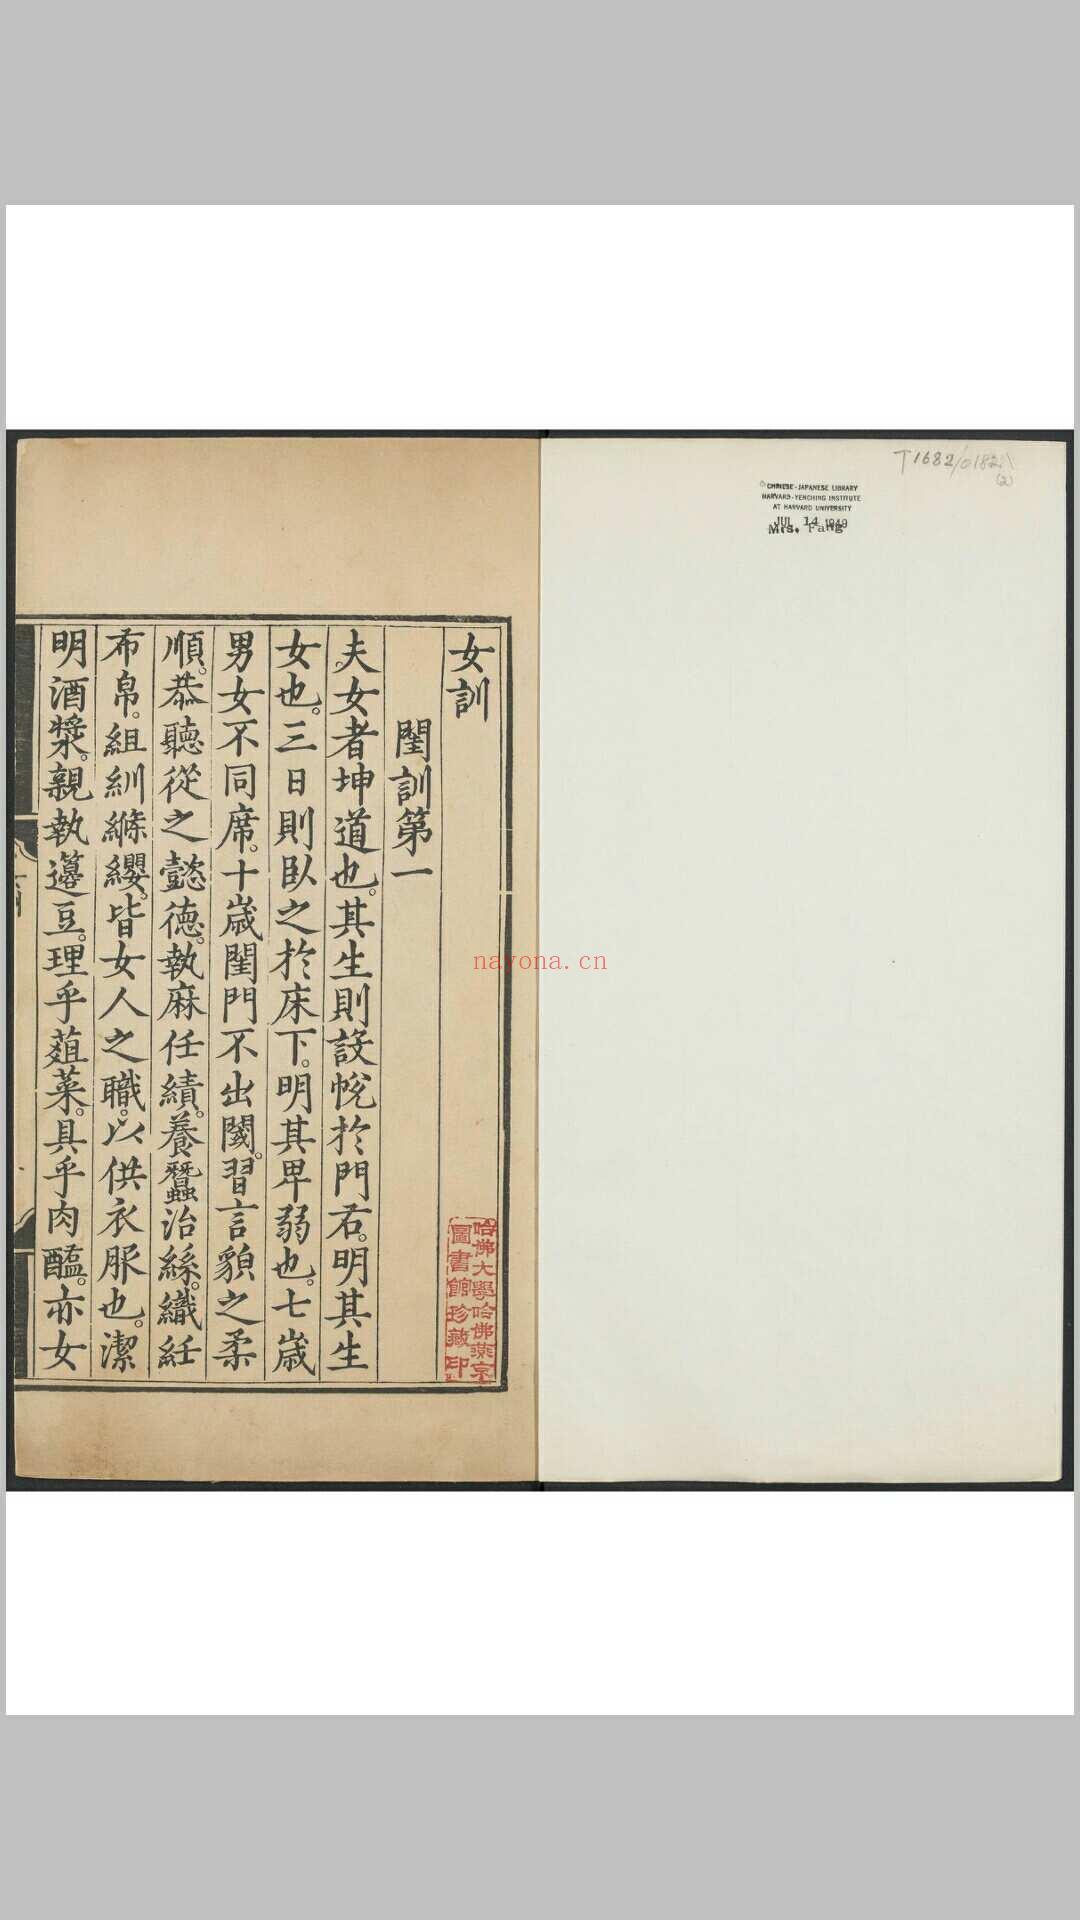 T1682/0182
(2)
CHINESE-JAPANESE LIBRARY
HARVARD-YENCHING INSTITUTE
AT HARVARD UNIVERSITY
JUL 14 1949
Mrs. Fang
女訓
閨訓第一
夫女者坤道也。其生則設帨於門右。明其生
女也。三日則臥之於床下。明其卑弱也。七歲
男女不同席。十歲閨門不出閾。習言貌之柔
順。恭聽從之懿德。執麻任績。養蠶治絲。織紝
布帛。組紃絛纓。皆女人之職。以供衣服也。潔
明酒漿。親執籩豆。理乎葅菜。具乎肉醢。亦女
哈佛大學哈佛燕京
圖書館珍藏印
nayona.cn